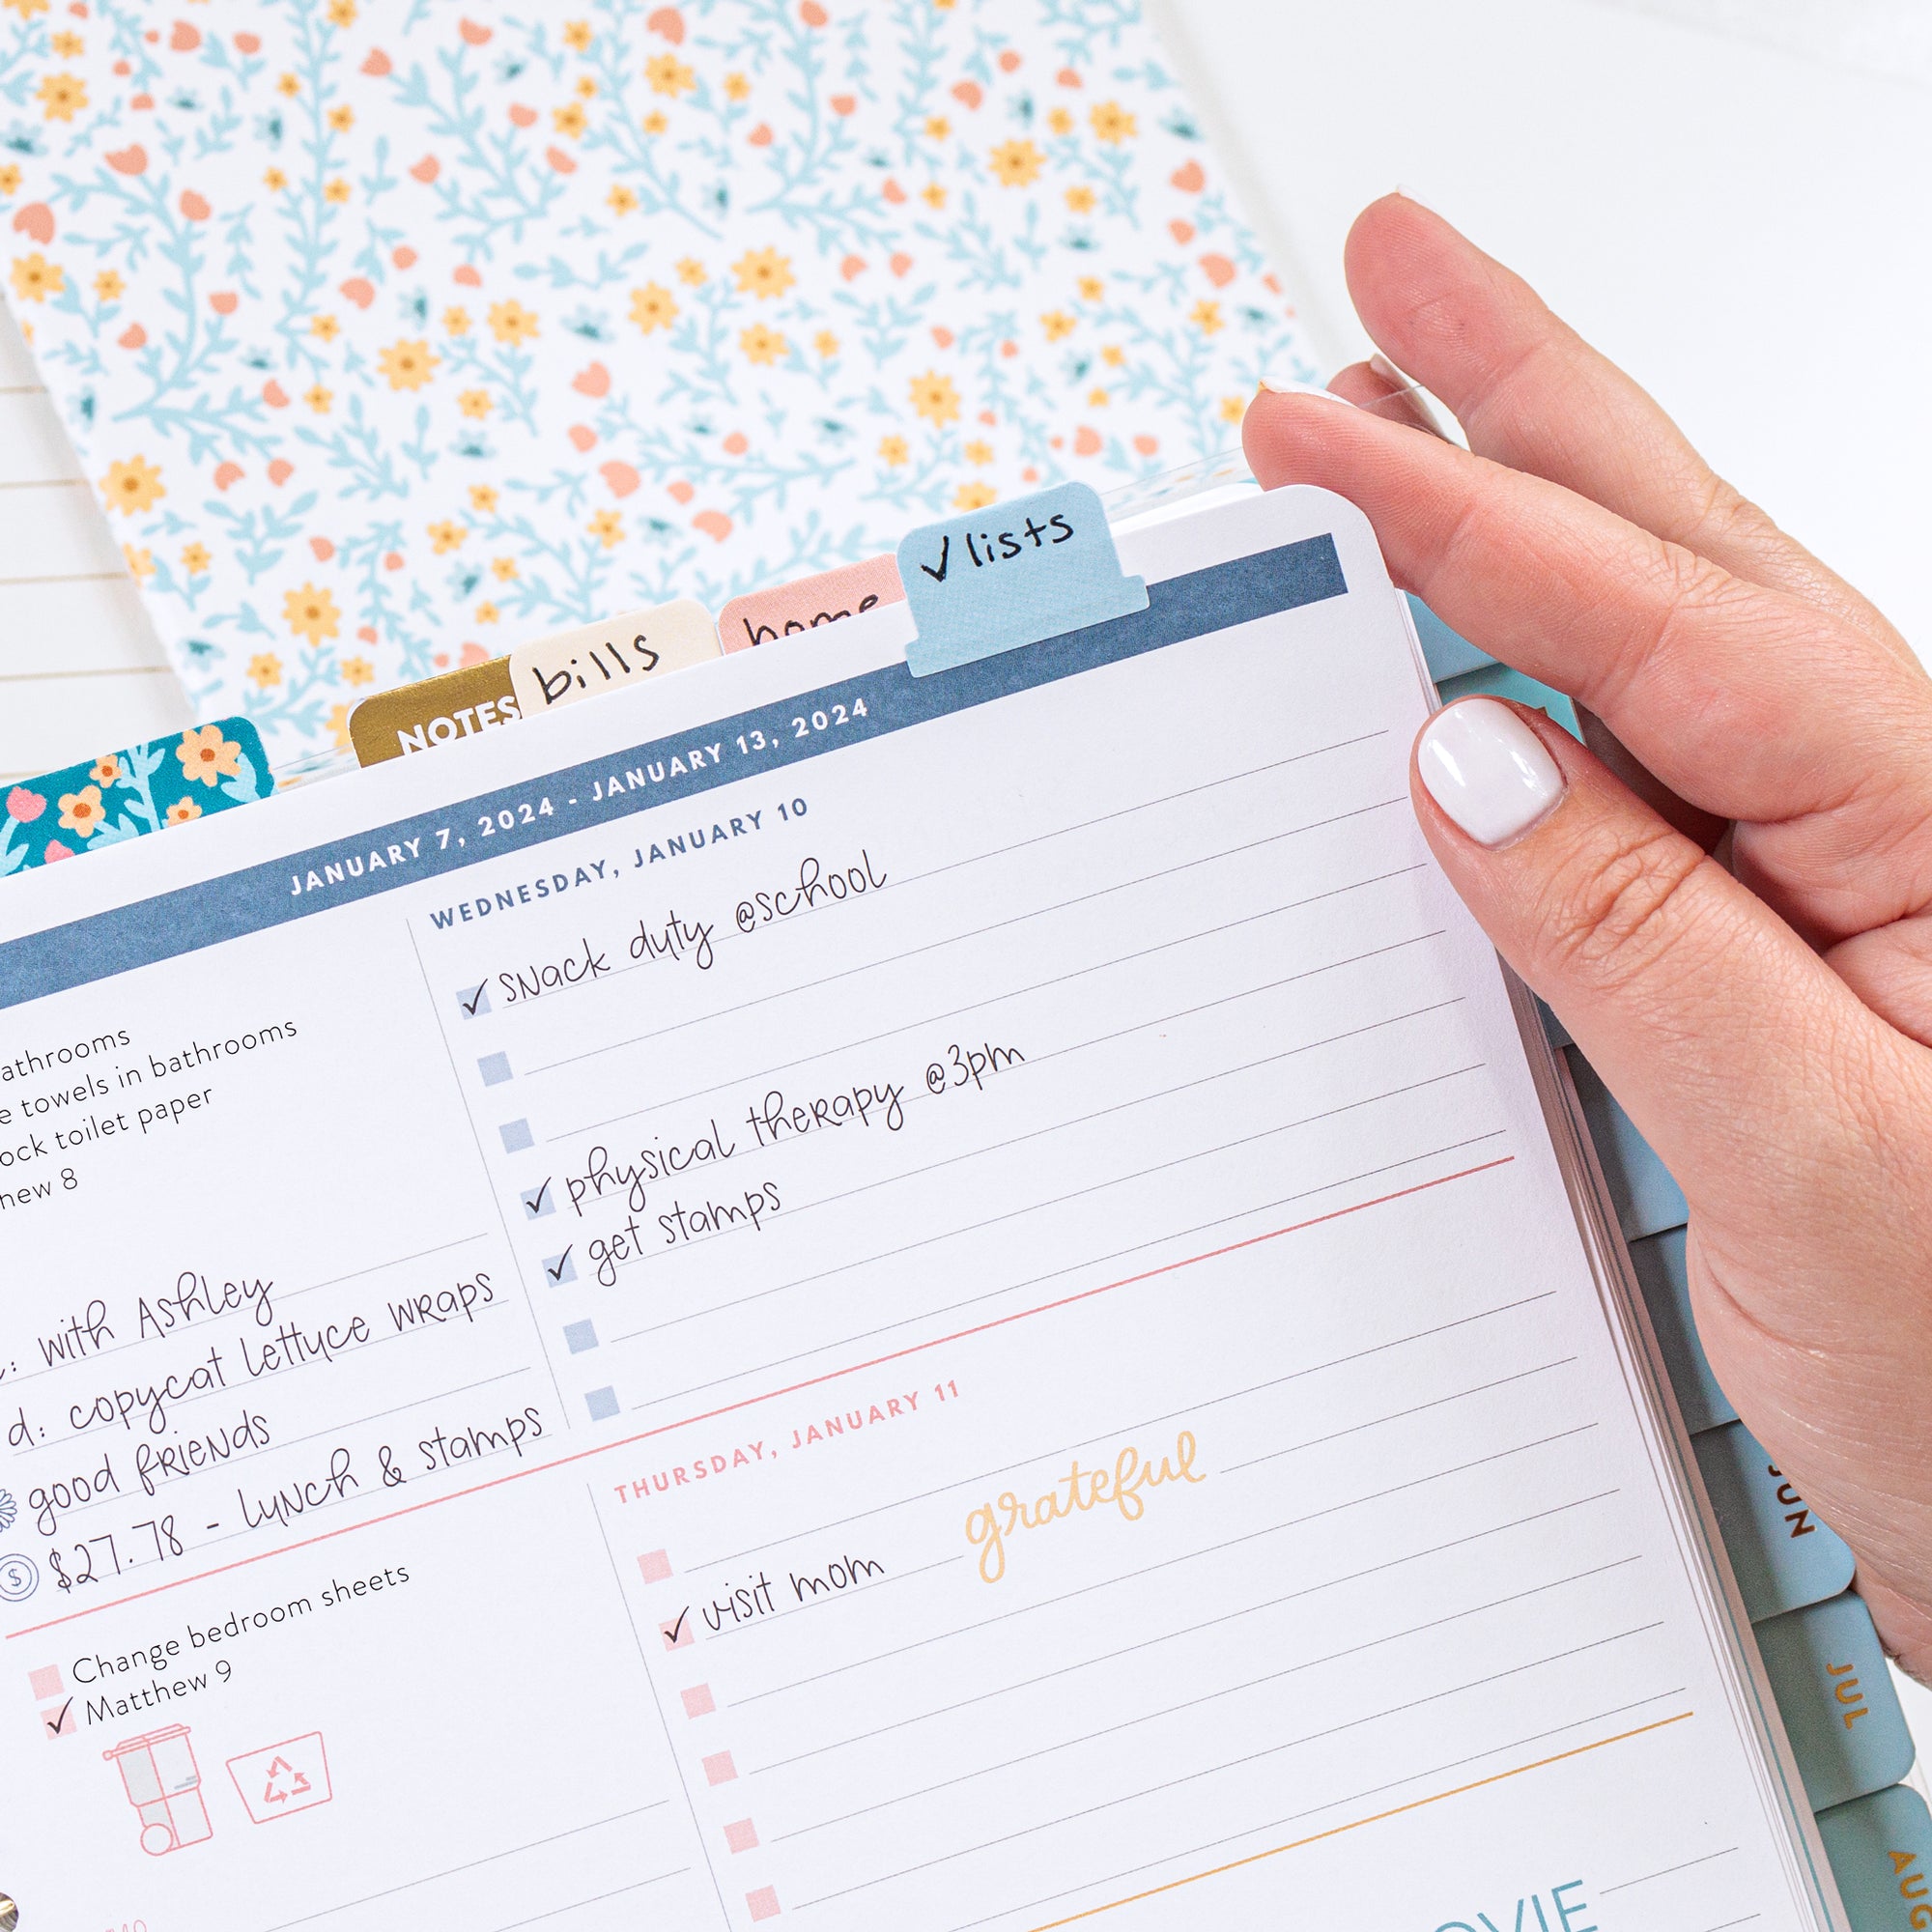 ✓ lists
home
bills
NOTES
JANUARY 7, 2024 - JANUARY 13, 2024
athrooms
e towels in bathrooms
ock toilet paper
hew 8
: with Ashley
d: copycat lettuce wraps
good friends
$27.78 - lunch & stamps
WEDNESDAY, JANUARY 10
✓ snack duty @school
✓ physical therapy @3pm
✓ get stamps
Change bedroom sheets
✓ Matthew 9
THURSDAY, JANUARY 11
grateful
✓ visit mom
OVIE
JUN
JUL
AUG